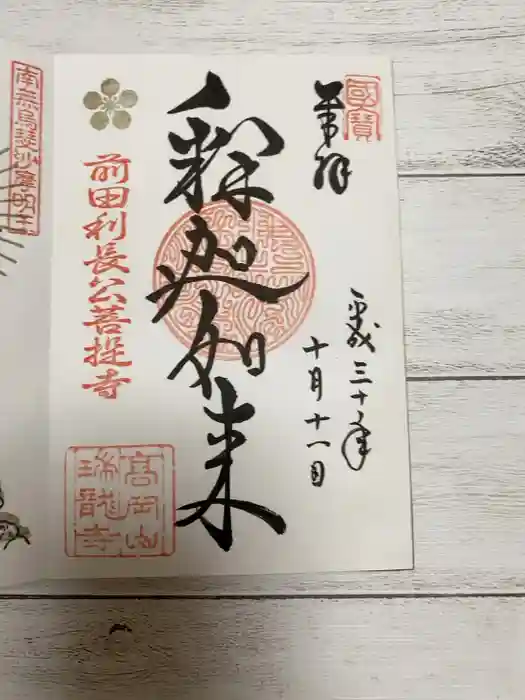 國寶
奉拝
平成三十年
十月十一日
釈迦如来
前田利長公菩提寺
高岡山
瑞龍寺
南無烏瑟沙摩明王